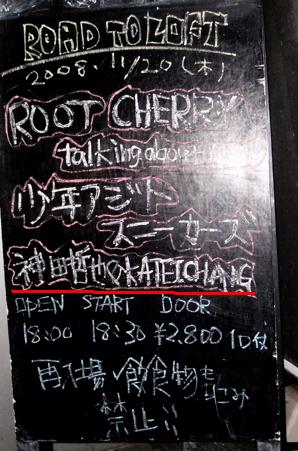 ROAD TO LOFT
2008. 11/20 (木)
ROOT CHERRY
talking about
少年アジト
スニーカーズ
神田哲也のKATEICHANG
OPEN START DOOR
18:00 18:30 ¥2.800 1D付
再入場、飲食物も込み
禁止!!